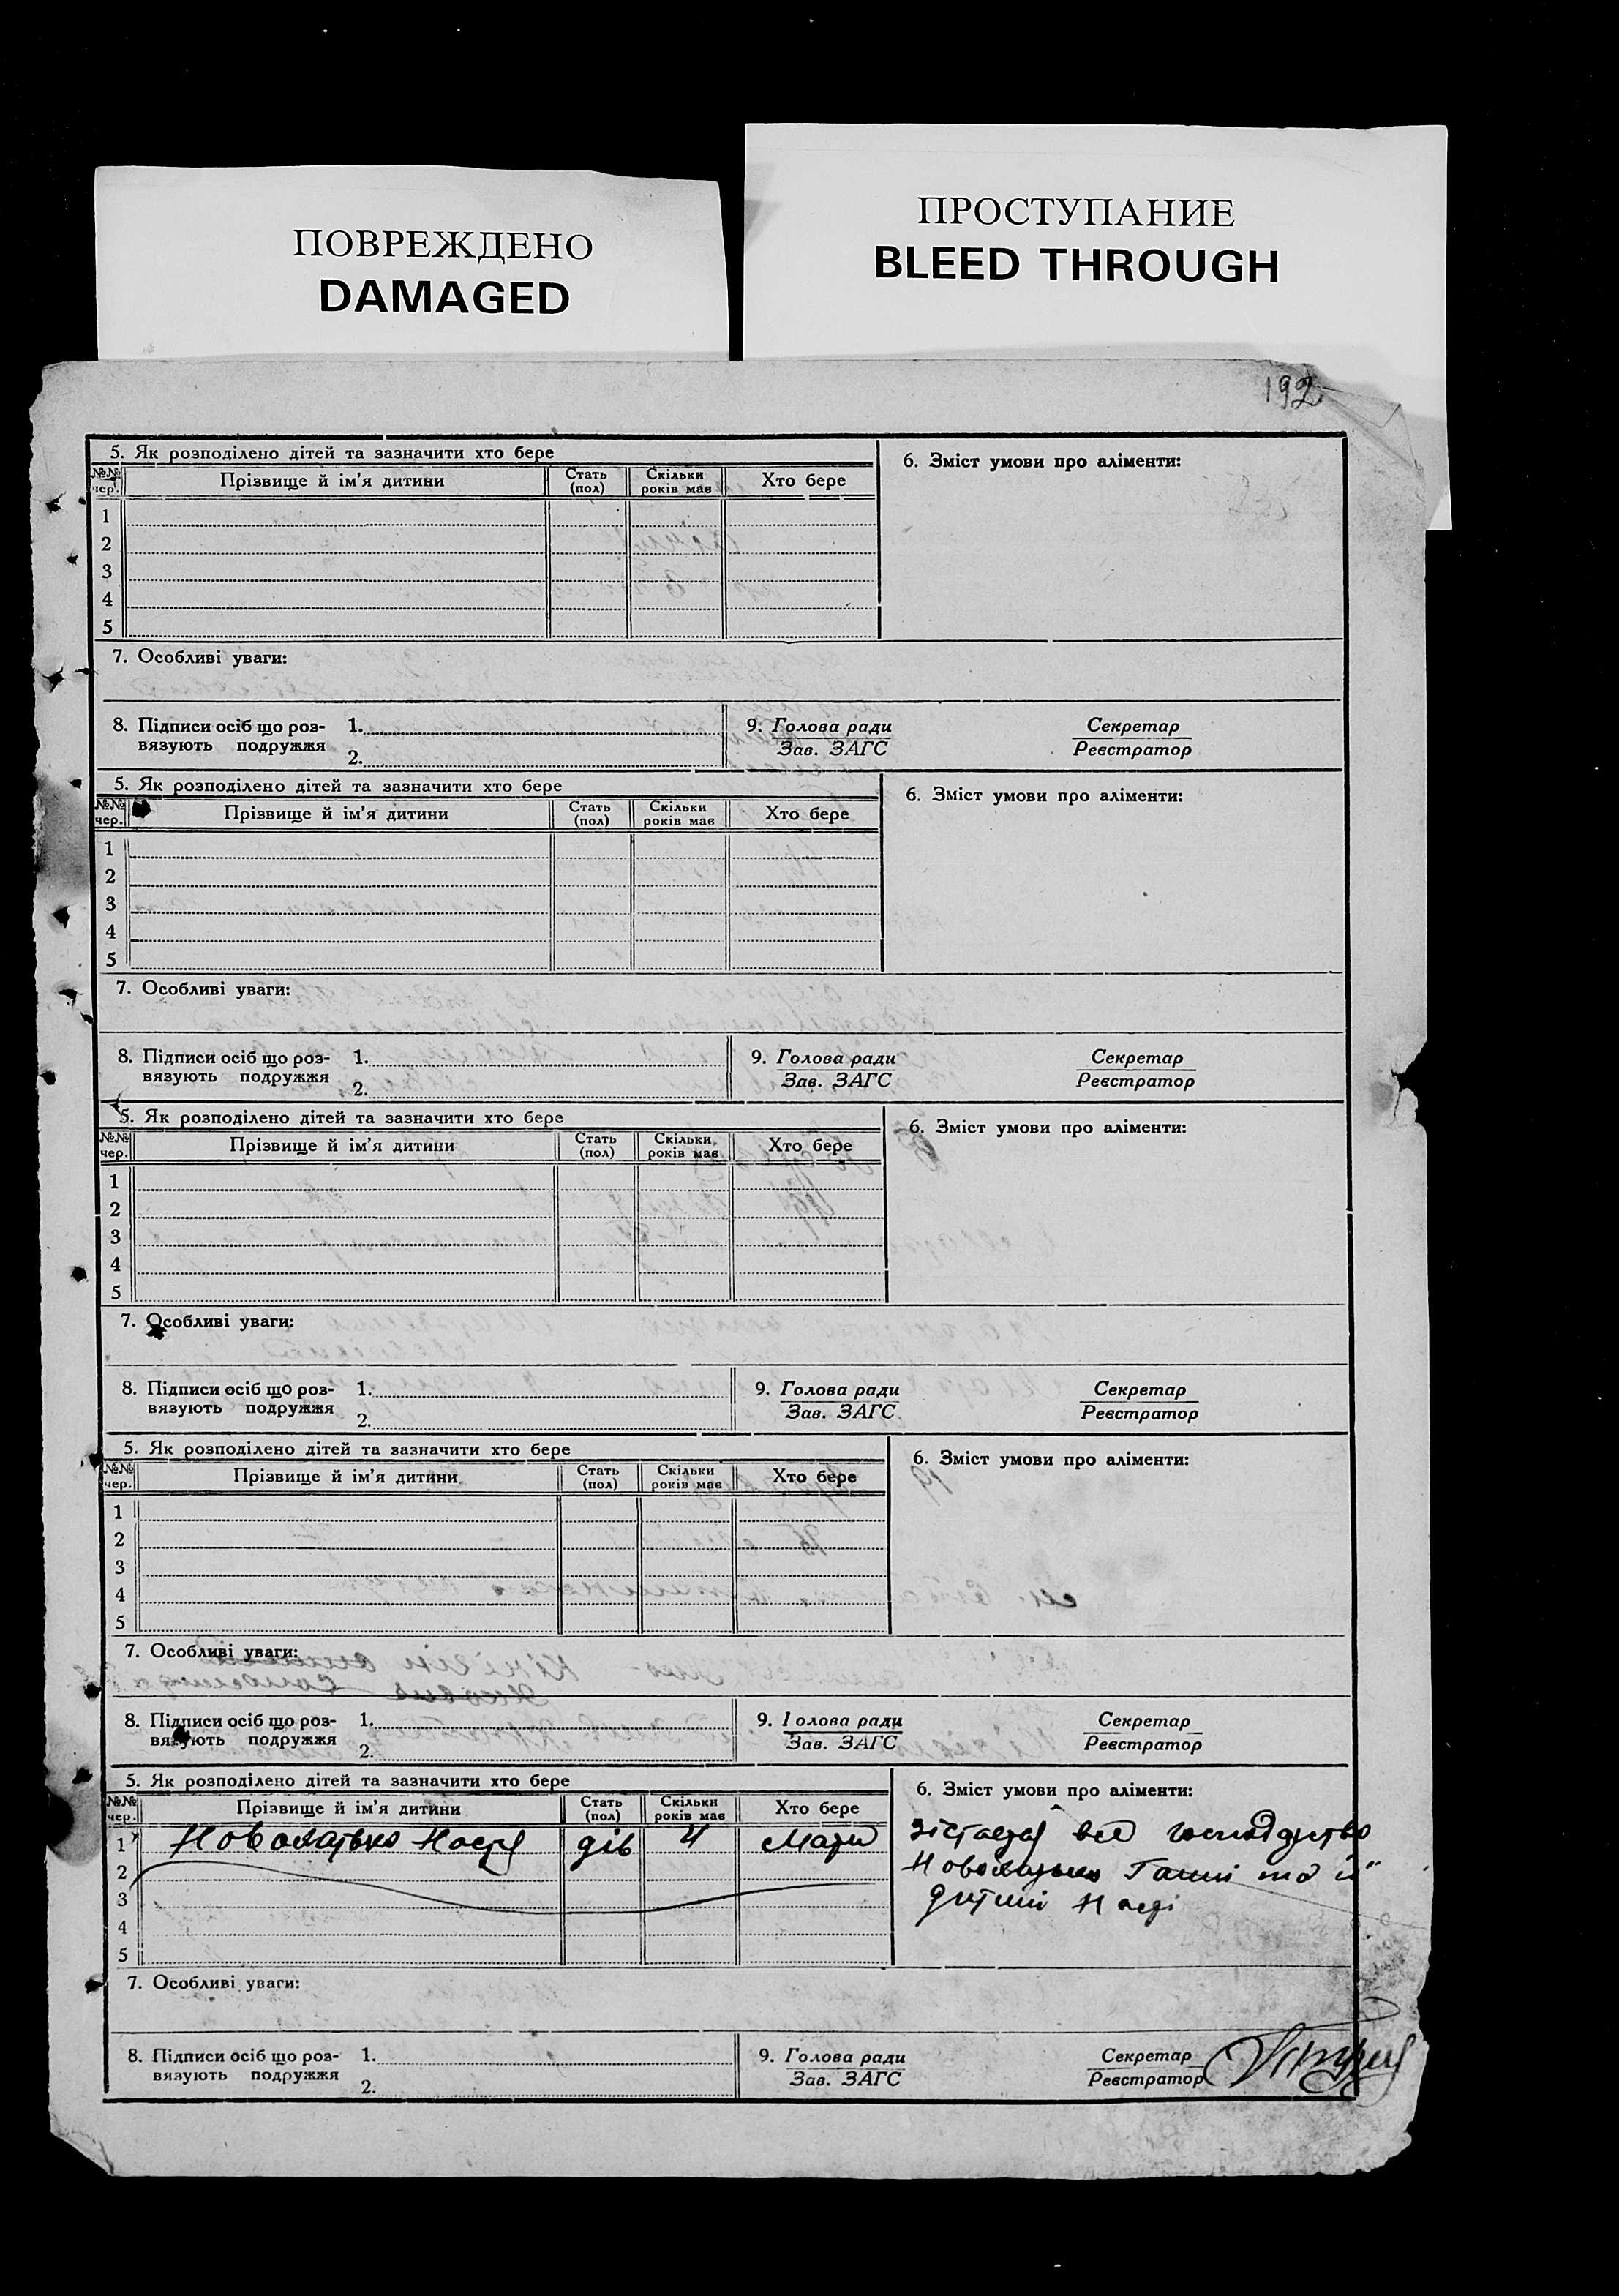 ПОВРЕЖДЕНО
DAMAGED
ПРОСТУПАНИЕ
BLEED THROUGH
192
5. Як розподілено дітей та зазначити хто бере
6. Зміст умови про аліменти:
№№ чер. Прізвище й ім'я дитини Стать (пол) Скільки років має Хто бере
1
2
3
4
5
7. Особливі уваги:
8. Підписи осіб що роз- 1. 9. Голова ради Секретар
вязують подружжя 2. Зав. ЗАГС Реєстратор
5. Як розподілено дітей та зазначити хто бере
6. Зміст умови про аліменти:
№№ чер. Прізвище й ім'я дитини Стать (пол) Скільки років має Хто бере
1
2
3
4
5
7. Особливі уваги:
8. Підписи осіб що роз- 1. 9. Голова ради Секретар
вязують подружжя 2. Зав. ЗАГС Реєстратор
5. Як розподілено дітей та зазначити хто бере
6. Зміст умови про аліменти:
№№ чер. Прізвище й ім'я дитини Стать (пол) Скільки років має Хто бере
1
2
3
4
5
7. Особливі уваги:
8. Підписи осіб що роз- 1. 9. Голова ради Секретар
вязують подружжя 2. Зав. ЗАГС Реєстратор
5. Як розподілено дітей та зазначити хто бере
6. Зміст умови про аліменти:
№№ чер. Прізвище й ім'я дитини Стать (пол) Скільки років має Хто бере
1
2
3
4
5
7. Особливі уваги:
8. Підписи осіб що роз- 1. 9. Голова ради Секретар
вязують подружжя 2. Зав. ЗАГС Реєстратор
5. Як розподілено дітей та зазначити хто бере
6. Зміст умови про аліменти:
№№ чер. Прізвище й ім'я дитини Стать (пол) Скільки років має Хто бере
1 дів 4 Мати
все господарство
Ганні та її
дитині Насді
2
3
4
5
7. Особливі уваги:
8. Підписи осіб що роз- 1. 9. Голова ради Секретар
вязують подружжя 2. Зав. ЗАГС Реєстратор